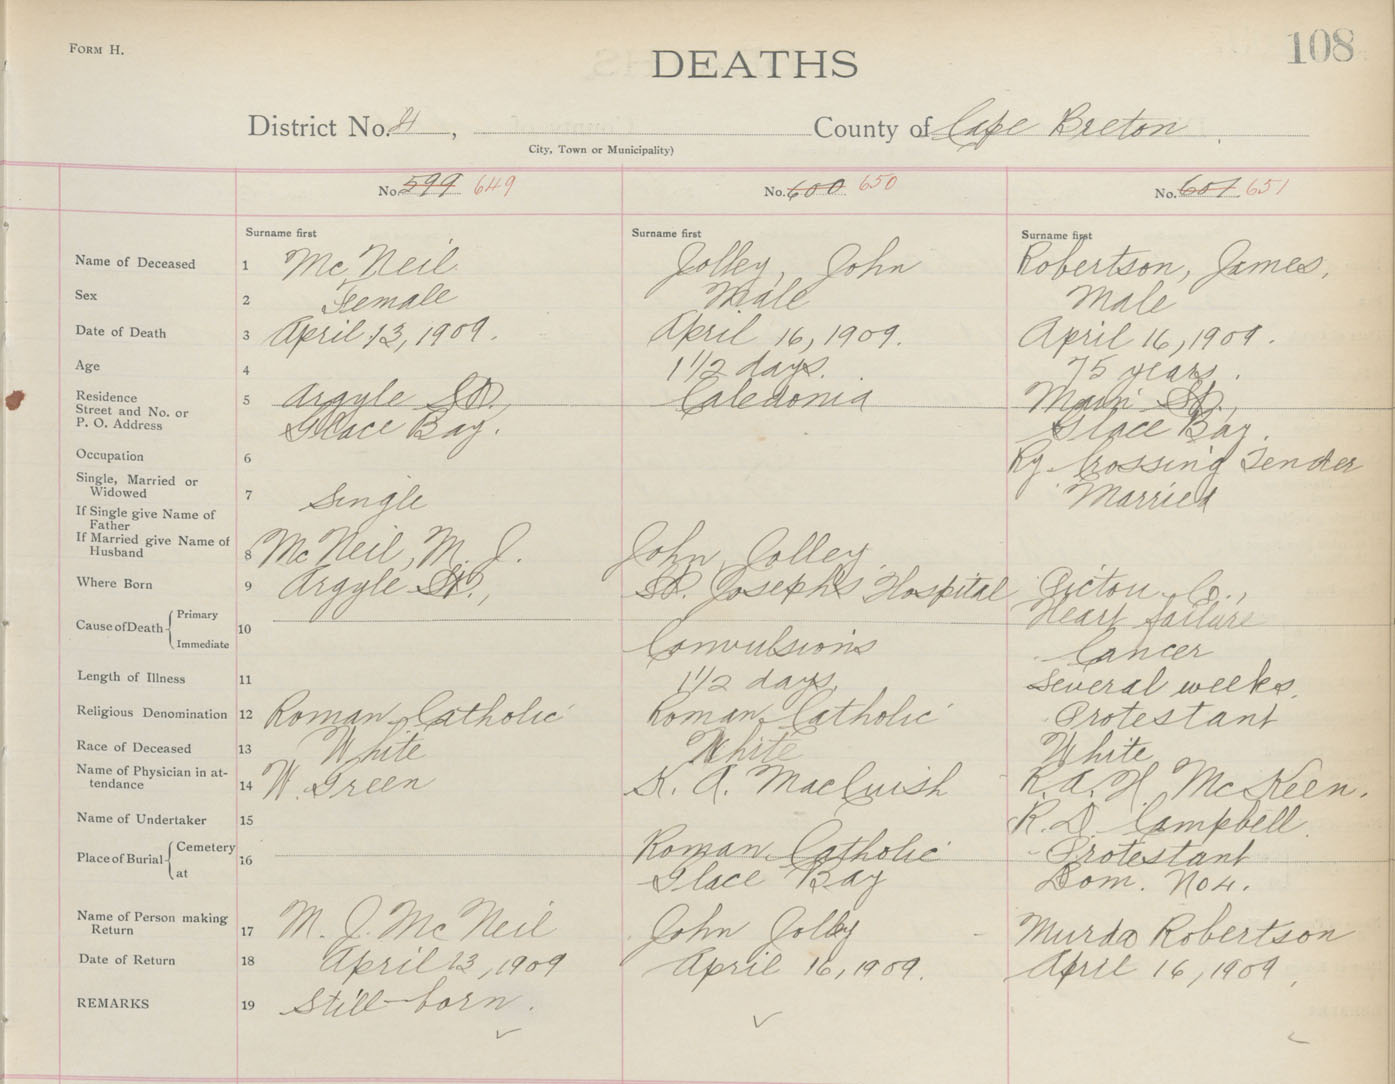 FORM H.
108
DEATHS
District No. 4, County of Cape Breton
City, Town or Municipality)
No. 599 649
No. 600 650
No. 601 651
Surname first
Surname first
Surname first
Name of Deceased 1 McNeil Jolley, John Robertson, James,
Sex 2 Female Male Male
Date of Death 3 April 13, 1909. April 16, 1909. April 16, 1909.
Age 4 1 1/2 days. 75 years.
Residence 5 Argyle St., Caledonia Main St.,
Street and No. or
P. O. Address Glace Bay. Glace Bay.
Occupation 6 Ry. Crossing Tender
Single, Married or
Widowed 7 Single Married
If Single give Name of
Father
If Married give Name of
Husband 8 McNeil, M. J. John Jolley
Where Born 9 Argyle St., St. Joseph's Hospital Pictou Co.,
Cause of Death Primary Heart failure
10
Immediate Convulsions Cancer
Length of Illness 11 1 1/2 days, Several weeks.
Religious Denomination 12 Roman Catholic Roman Catholic Protestant
Race of Deceased 13 White White White
Name of Physician in at-
tendance 14 W. Green K. A. MacCuish R. A. H. McKeen.
Name of Undertaker 15 R. D. Campbell.
Place of Burial Cemetery 16 Roman Catholic Protestant
at Glace Bay Dom. No 4.
Name of Person making
Return 17 M. J. McNeil John Jolley Murdo Robertson
Date of Return 18 April 13, 1909 April 16, 1909. April 16, 1909.
REMARKS 19 Still-born.